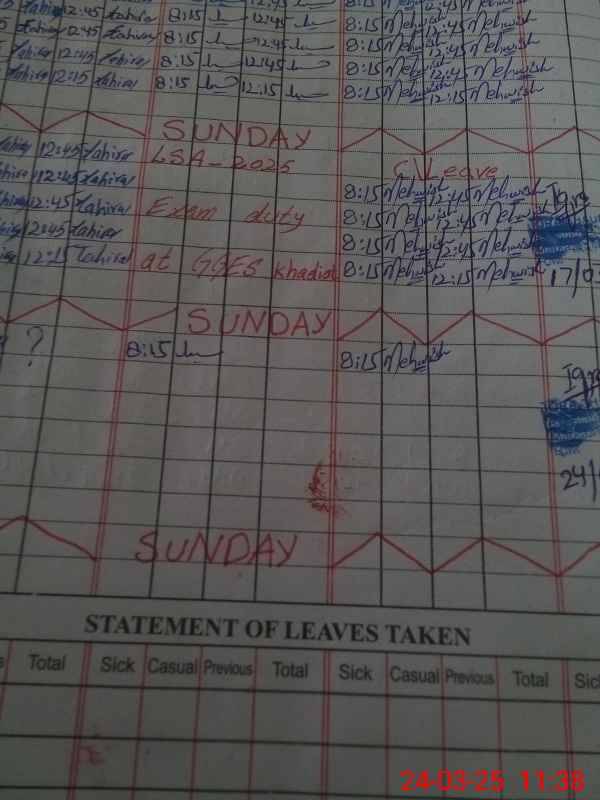 12:45 Tahira 8:15 12:45 8:15 Mehwish 12:45 Mehwish
12:45 Tahira 8:15 12:45 8:15 Mehwish 12:45 Mehwish
Tahira 12:45 Tahira 8:15 12:45 8:15 Mehwish 12:45 Mehwish
Tahira 12:15 Tahira 8:15 12:15 8:15 Mehwish 12:15 Mehwish
SUNDAY
12:45 Tahira LSA-2025 C/Leave
12:45 Tahira 8:15 Mehwish 12:45 Mehwish
12:45 Tahira Exam duty 8:15 Mehwish 12:45 Mehwish
12:45 Tahira 8:15 Mehwish 12:45 Mehwish
12:15 Tahira at GGES 8:15 Mehwish 12:15 Mehwish 17/03
SUNDAY
? 8:15 8:15 Mehwish
Iqra
24/
SUNDAY
STATEMENT OF LEAVES TAKEN
Total Sick Casual Previous Total Sick Casual Previous Total Sic
24-03-25 11:38